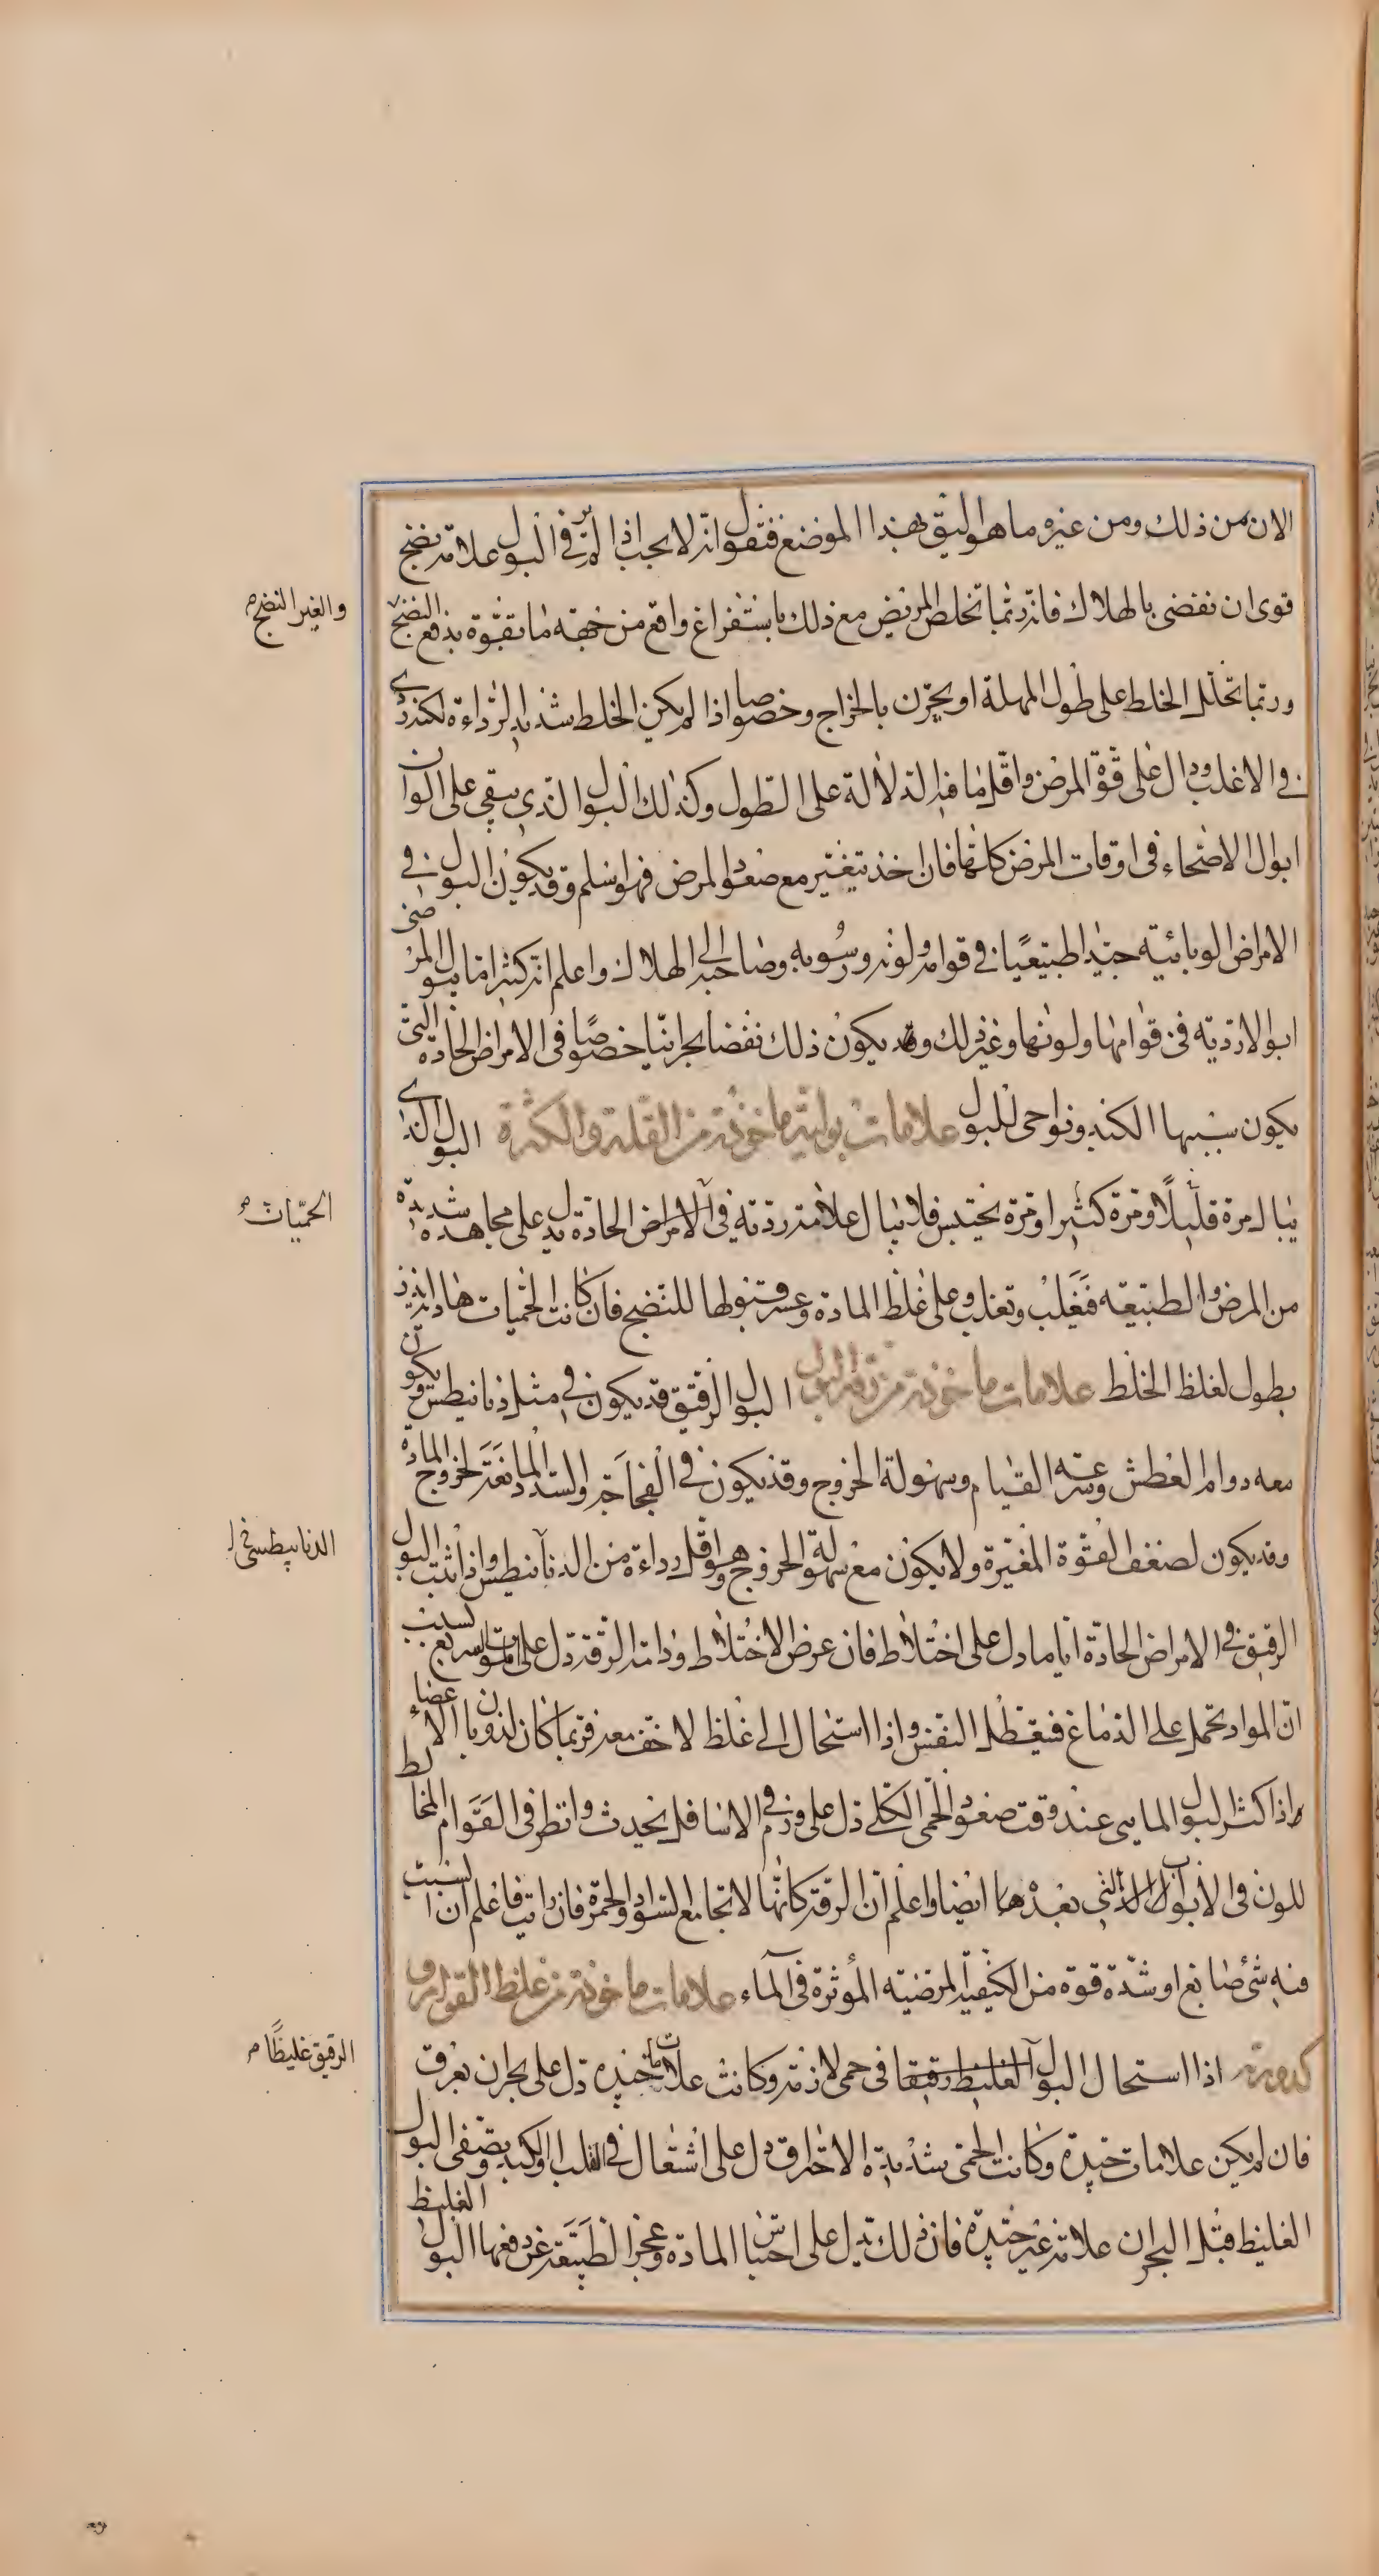 الان من ذلك ومن غيره ما هو اليق بهذا الموضع فنقول انه لا يجب اذا لم ير في البول علامة نضج
قوى ان نقضى بالهلاك فانه ربما تخلص المريض مع ذلك باستفراغ واقع من جهة ما بقوة يدفع النضج
والغير النضج
وربما تحلل الخلط على طول المهلة او بحرن بالخراج وخصوصا اذا لم يكن الخلط شديد الرداءة لكنه ردى
في الاغلب ودال على قوة المرض واقل ما فيه الدلالة على الطول وكذلك البول الذي يبقى على الوان
ابوال الاصحاء في اوقات المرض كلها فان اخذ يتغير مع صعود المرض فهو اسلم وقد يكون البول في
الامراض الوبائية جيدا طبيعيا في قوامه ولونه ورسوبه وصاحبه الى الهلاك واعلم انه كثيرا ما يبول المرضى
ابوالا ردية في قوامها ولونها وغير ذلك وقد يكون ذلك نفضا بحرانيا خصوصا في الامراض الحادة التى
يكون سببها الكبد ونواحى للبول علامات بولية ماخوذة من القلة والكثرة البول الذى
يبال مرة قليلا ومرة كثيرا ومرة يحتبس فلا يبال علامة ردية في الامراض الحادة يدل على مجاهدة شديدة
الحميات
من المرض والطبيعة فتغلب وتغلب وعلى غلظ المادة وعسر قبولها للنضج فان كانت الحميات هادية انذر
بطول لغلظ الخلط علامات ماخوذة من رقة البول البول الرقيق قد يكون في مثل ذيانيطس ويكون
معه دوام العطش وسرعة القيام وسهولة الخروج وقد يكون في الفجاجة والسدد المانعة لخروج المادة
وقد يكون لضعف القوة المغيرة ولا يكون مع سهولة الخروج وهو اقل رداءة من الديانيطس واذا ثبت البول
الديانيطسي
الرقيق في الامراض الحادة اياما دل على اختلاط فان عرض الاختلاط ودامت الرقة دل على الموت السريع لسبب
ان المواد تحمل على الدماغ فيتعطل النفس واذا استحال الى غلظ لا خف معه فربما كان لذوبان الاعضاء
واذا كثر البول المايى عند وقت صعود الحمى الكلى دل على ورم في الاسافل يحدث وانظر في القوام المخالط
للون في الابواب التي بعد هما ايضا واعلم ان الرقة كانها لا تجامع السواد والحمرة فان رايت فاعلم ان السبب
فيه شئ صابغ او شدة قوة من الكيفية المرضية المؤثرة في الماء علامات ماخوذة من غلظ القوام و
كدورته اذا استحال البول الغليظ رقيقا في حمى لازمة وكانت علامات جيدة دل على بحران بعرق
الرقيق غليظا
فان لم يكن علامات جيدة وكانت الحمى شديدة الاحتراق دل على اشتعال في القلب او الكبد وصفى البول
الغليظ قبل البحران علامة غير جيدة فان ذلك يدل على احتباس المادة وعجز الطبيعة عن دفعها البول الغليظ